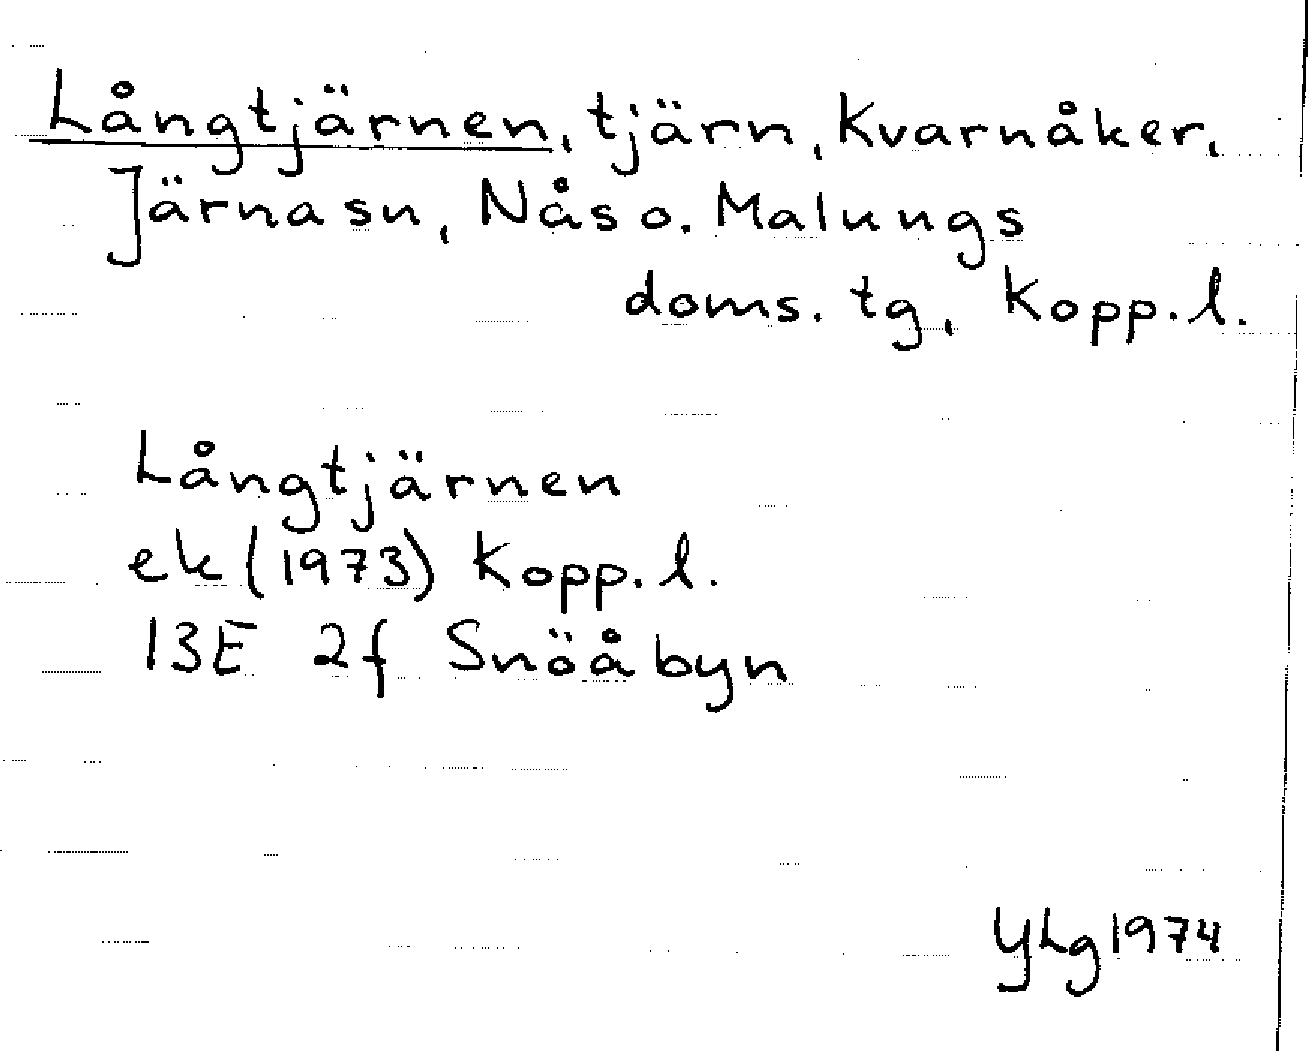 Långtjärnen, tjärn, Kvarnåker,
Järna sn, Nås o. Malungs
doms. tg, Kopp. l.
Långtjärnen
ek (1973) Kopp. l.
13E 2f Snöåbyn
YLg 1974